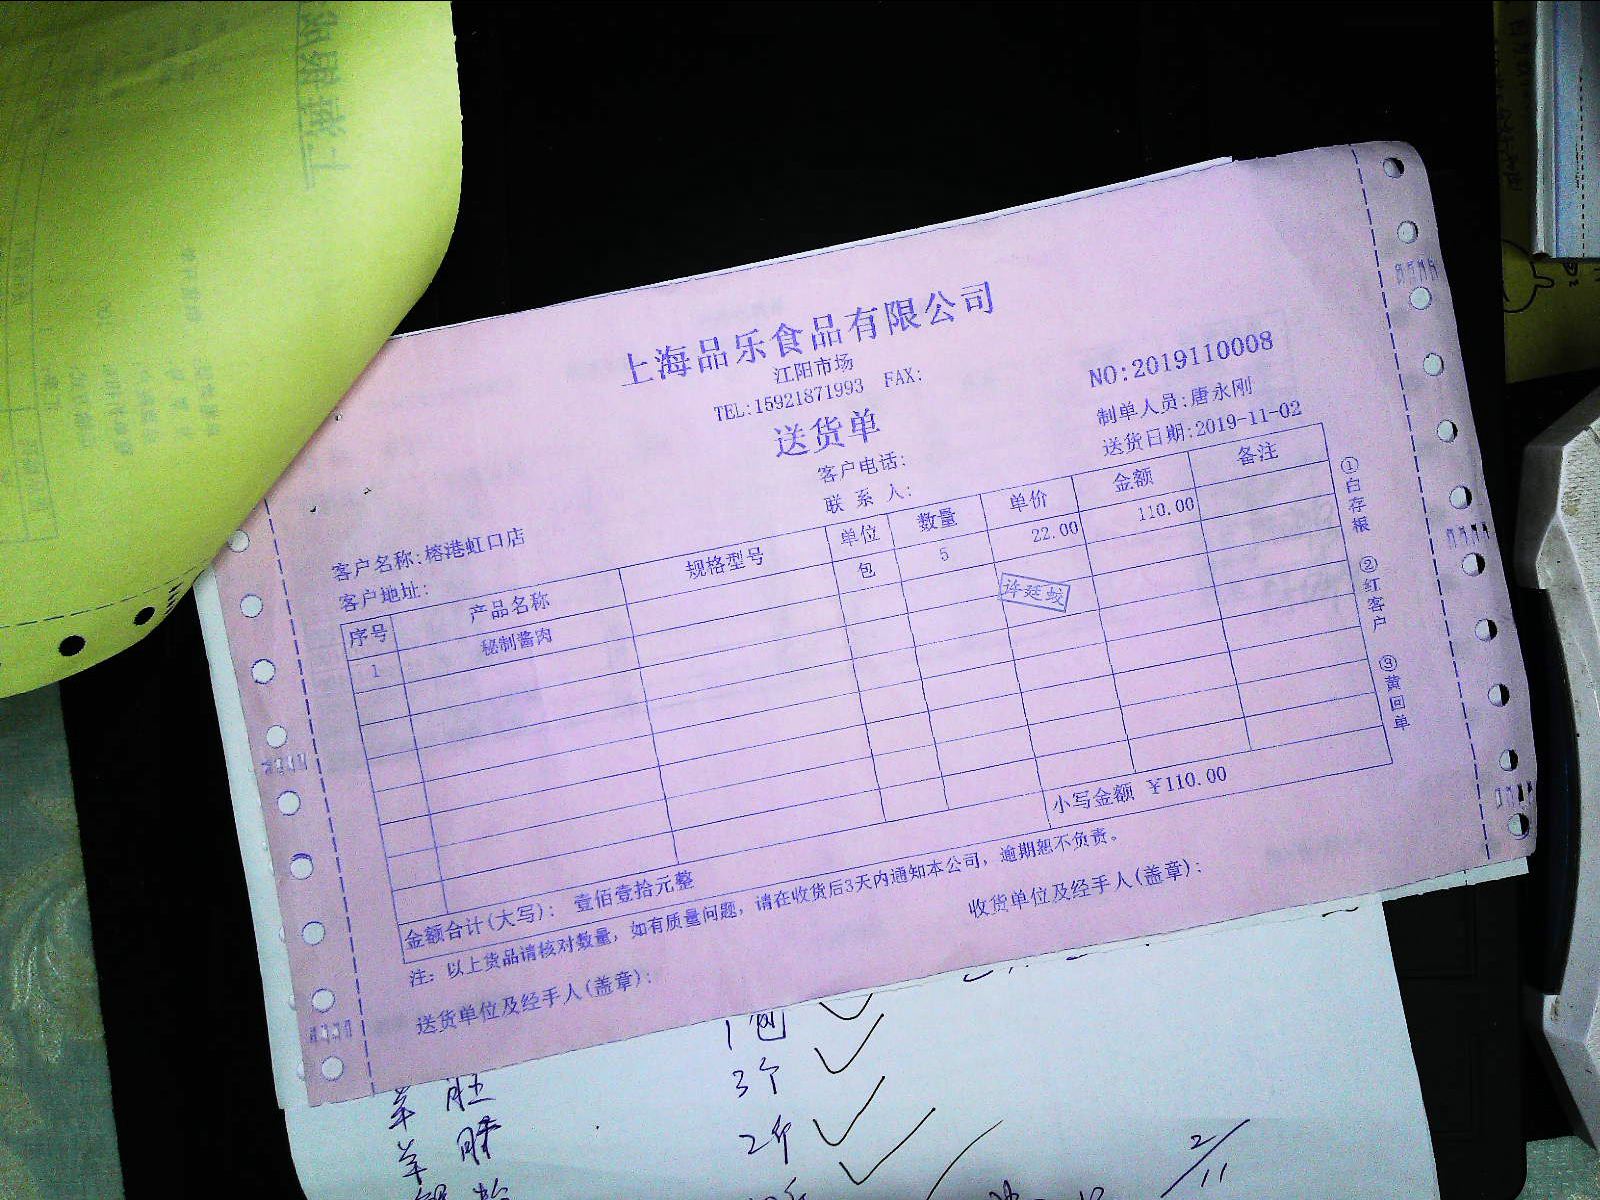 上海品乐食品有限公司
江阳市场
TEL:15921871993 FAX:
NO:2019110008
送货单
制单人员:唐永刚
客户电话:
送货日期:2019-11-02
联 系 人:
客户名称:榕港虹口店
客户地址:
序号 产品名称 规格型号 单位 数量 单价 金额 备注
1 秘制酱肉 包 5 22.00 110.00
许廷蛟
①白存根 ②红客户 ③黄回单
小写金额 ￥110.00
金额合计(大写): 壹佰壹拾元整
注: 以上货品请核对数量, 如有质量问题, 请在收货后3天内通知本公司, 逾期恕不负责。
送货单位及经手人(盖章): 收货单位及经手人(盖章):
1包
3个
2斤
2/11